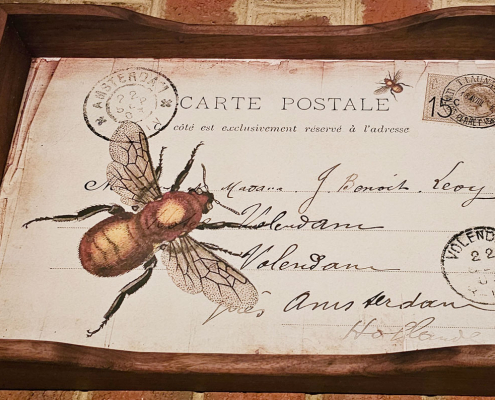 AMSTERDAM
CARTE POSTALE
15
côté est exclusivement réservé à l'adresse
Madame J. Benoit. Levy
Volendam
Volendam
près Amsterdam
Hollande
VOLENDAM
22